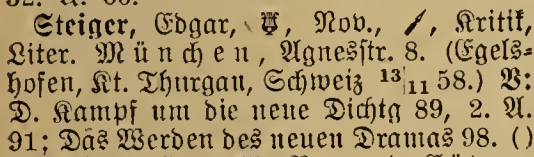 Steiger, Edgar, Nov., Kritik,
Liter. München, Agnesstr. 8. (Egels=
hofen, Kt. Thurgau, Schweiz 13|11 58.) V:
D. Kampf um die neue Dichtg 89, 2. A.
91; Das Werden des neuen Dramas 98. ()